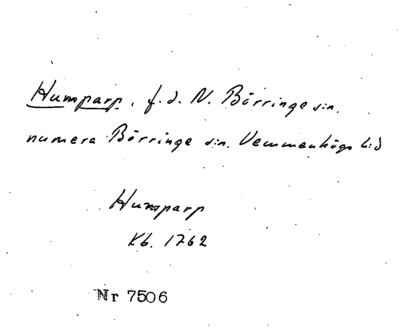 Humparp, f.d. N. Börringe sn.
numera Börringe sn. Vemmenhögs hd
Humparp
Kb. 1762
Nr 7506